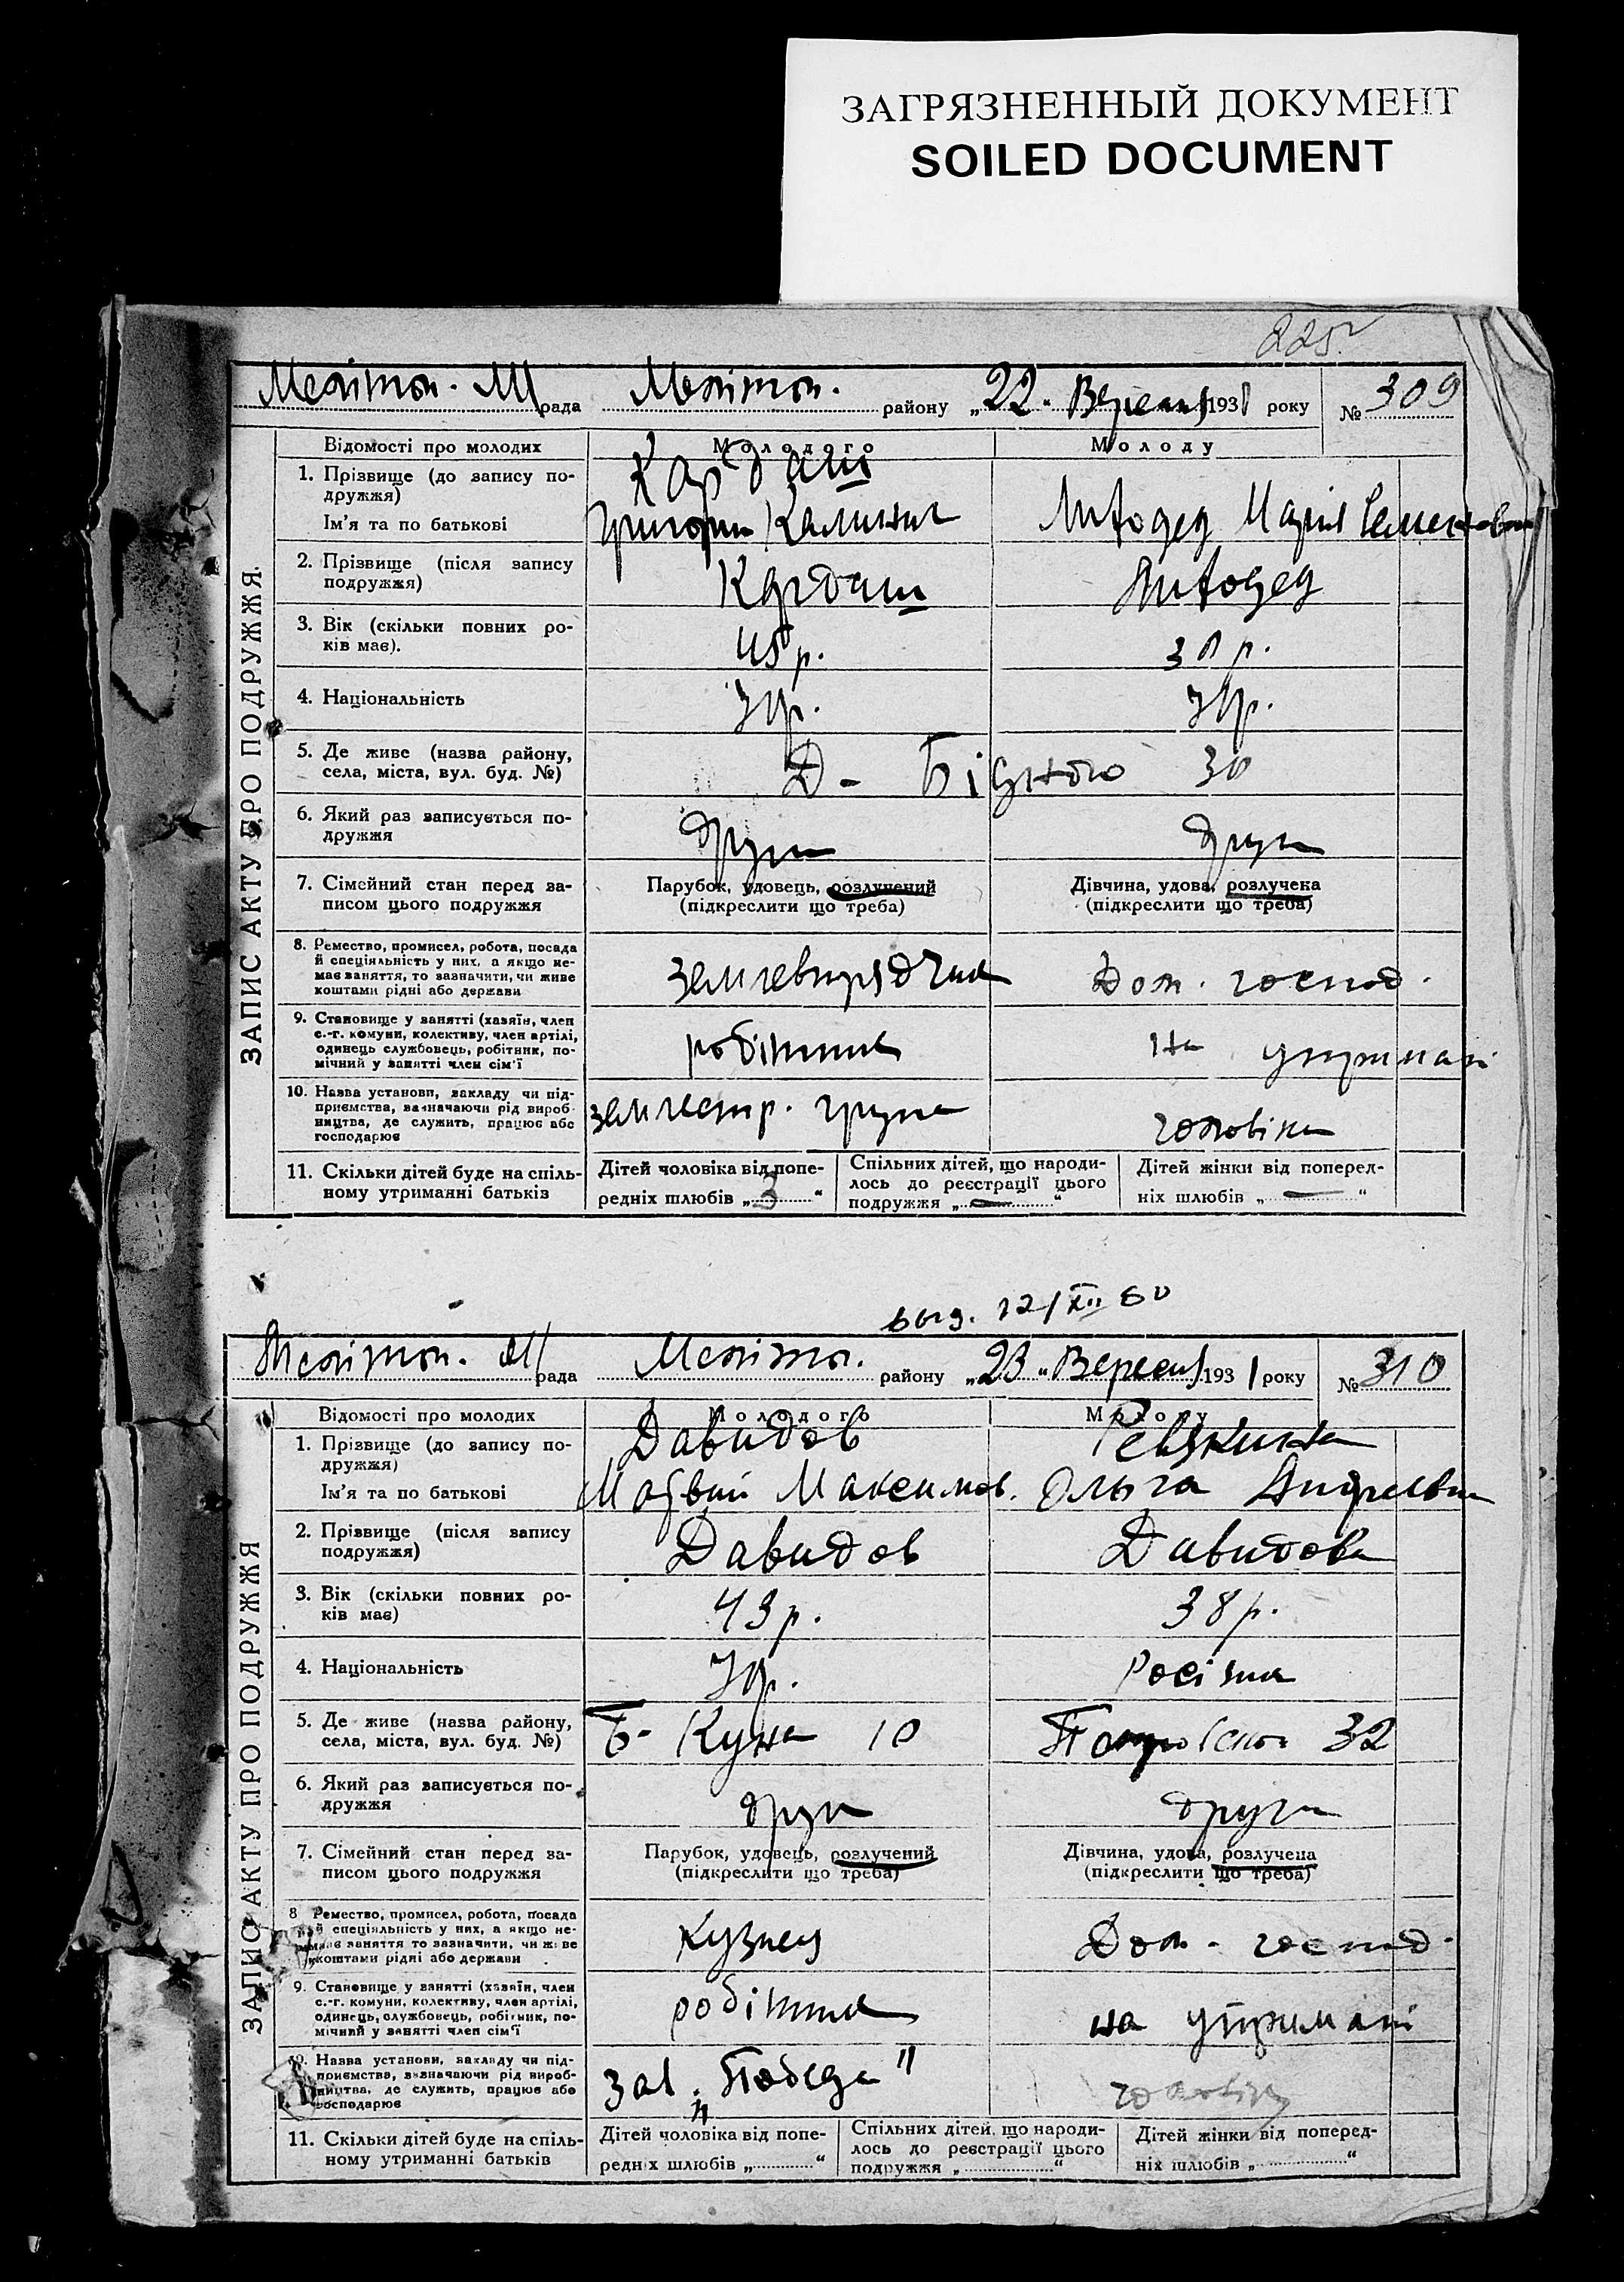 ЗАГРЯЗНЕННЫЙ ДОКУМЕНТ
SOILED DOCUMENT
225
Меліт. М рада Меліт. району „22" Вересня 1931 року № 309
ЗАПИС АКТУ ПРО ПОДРУЖЖЯ
Відомості про молодих
Молодого
Молоду
1. Прізвище (до запису по-
дружжя)
Ім'я та по батькові
Кардаш
Григорій Калинич
Марія Семеновна
2. Прізвище (після запису
подружжя)
Кардаш
3. Вік (скільки повних ро-
ків має).
45 р.
30 р.
4. Національність
Укр.
Укр.
5. Де живе (назва району,
села, міста, вул. буд. №)
Д- Бідного 30
6. Який раз записується по-
дружжя
други
други
7. Сімейний стан перед за-
писом цього подружжя
Парубок, удовець, розлучений
(підкреслити що треба)
Дівчина, удова, розлучена
(підкреслити що треба)
8. Ремество, промисел, робота, посада
й спеціяльність у них, а якщо не-
має заняття, то зазначити, чи живе
коштами рідні або держави
землевпорядчик
Дом. господ.
9. Становище у занятті (хазяїн, член
с.-г. комуни, колективу, член артілі,
одинець службовець, робітник, по-
мічний у занятті член сім'ї
робітник
на утримані
10. Назва установи, закладу чи під-
приємства, зазначаючи рід вироб-
ництва, де служить, працює або
господарює
група
чоловіка
11. Скільки дітей буде на спіль-
ному утриманні батьків
Дітей чоловіка від попе-
редніх шлюбів „3"
Спільних дітей, що народи-
лось до реєстрації цього
подружжя „—"
Дітей жінки від поперед-
ніх шлюбів „—"
выд. 12/XII 60
Меліт. М рада Меліт. району „23" Вересня 1931 року № 310
ЗАПИС АКТУ ПРО ПОДРУЖЖЯ
Відомості про молодих
Молодого
Молоду
1. Прізвище (до запису по-
дружжя)
Ім'я та по батькові
Давидов
Матвій Максимов.
Ревякина
Ольга Андреевна
2. Прізвище (після запису
подружжя)
Давидов
Давидова
3. Вік (скільки повних ро-
ків має)
43 р.
38 р.
4. Національність
Укр.
Росіянка
5. Де живе (назва району,
села, міста, вул. буд. №)
Б- Куна 10
32
6. Який раз записується по-
дружжя
други
други
7. Сімейний стан перед за-
писом цього подружжя
Парубок, удовець, розлучений
(підкреслити що треба)
Дівчина, удова, розлучена
(підкреслити що треба)
8 Ремество, промисел, робота, посада
й спеціяльність у них, а якщо не-
має заняття то зазначити, чи живе
коштами рідні або держави
кузнец
Дом. господ.
9. Становище у занятті (хазяїн, член
с.-г. комуни, колективу, член артілі,
одинець, службовець, робітник, по-
мічний у занятті член сім'ї
робітник
на утримані
10. Назва установи, закладу чи під-
приємства, зазначаючи рід вироб-
ництва, де служить, працює або
господарює
зав. „Победа"
чоловіка
11. Скільки дітей буде на спіль-
ному утриманні батьків
Дітей чоловіка від попе-
редніх шлюбів „ "
Спільних дітей, що народи-
лось до реєстрації цього
подружжя „ "
Дітей жінки від поперед-
ніх шлюбів „ "